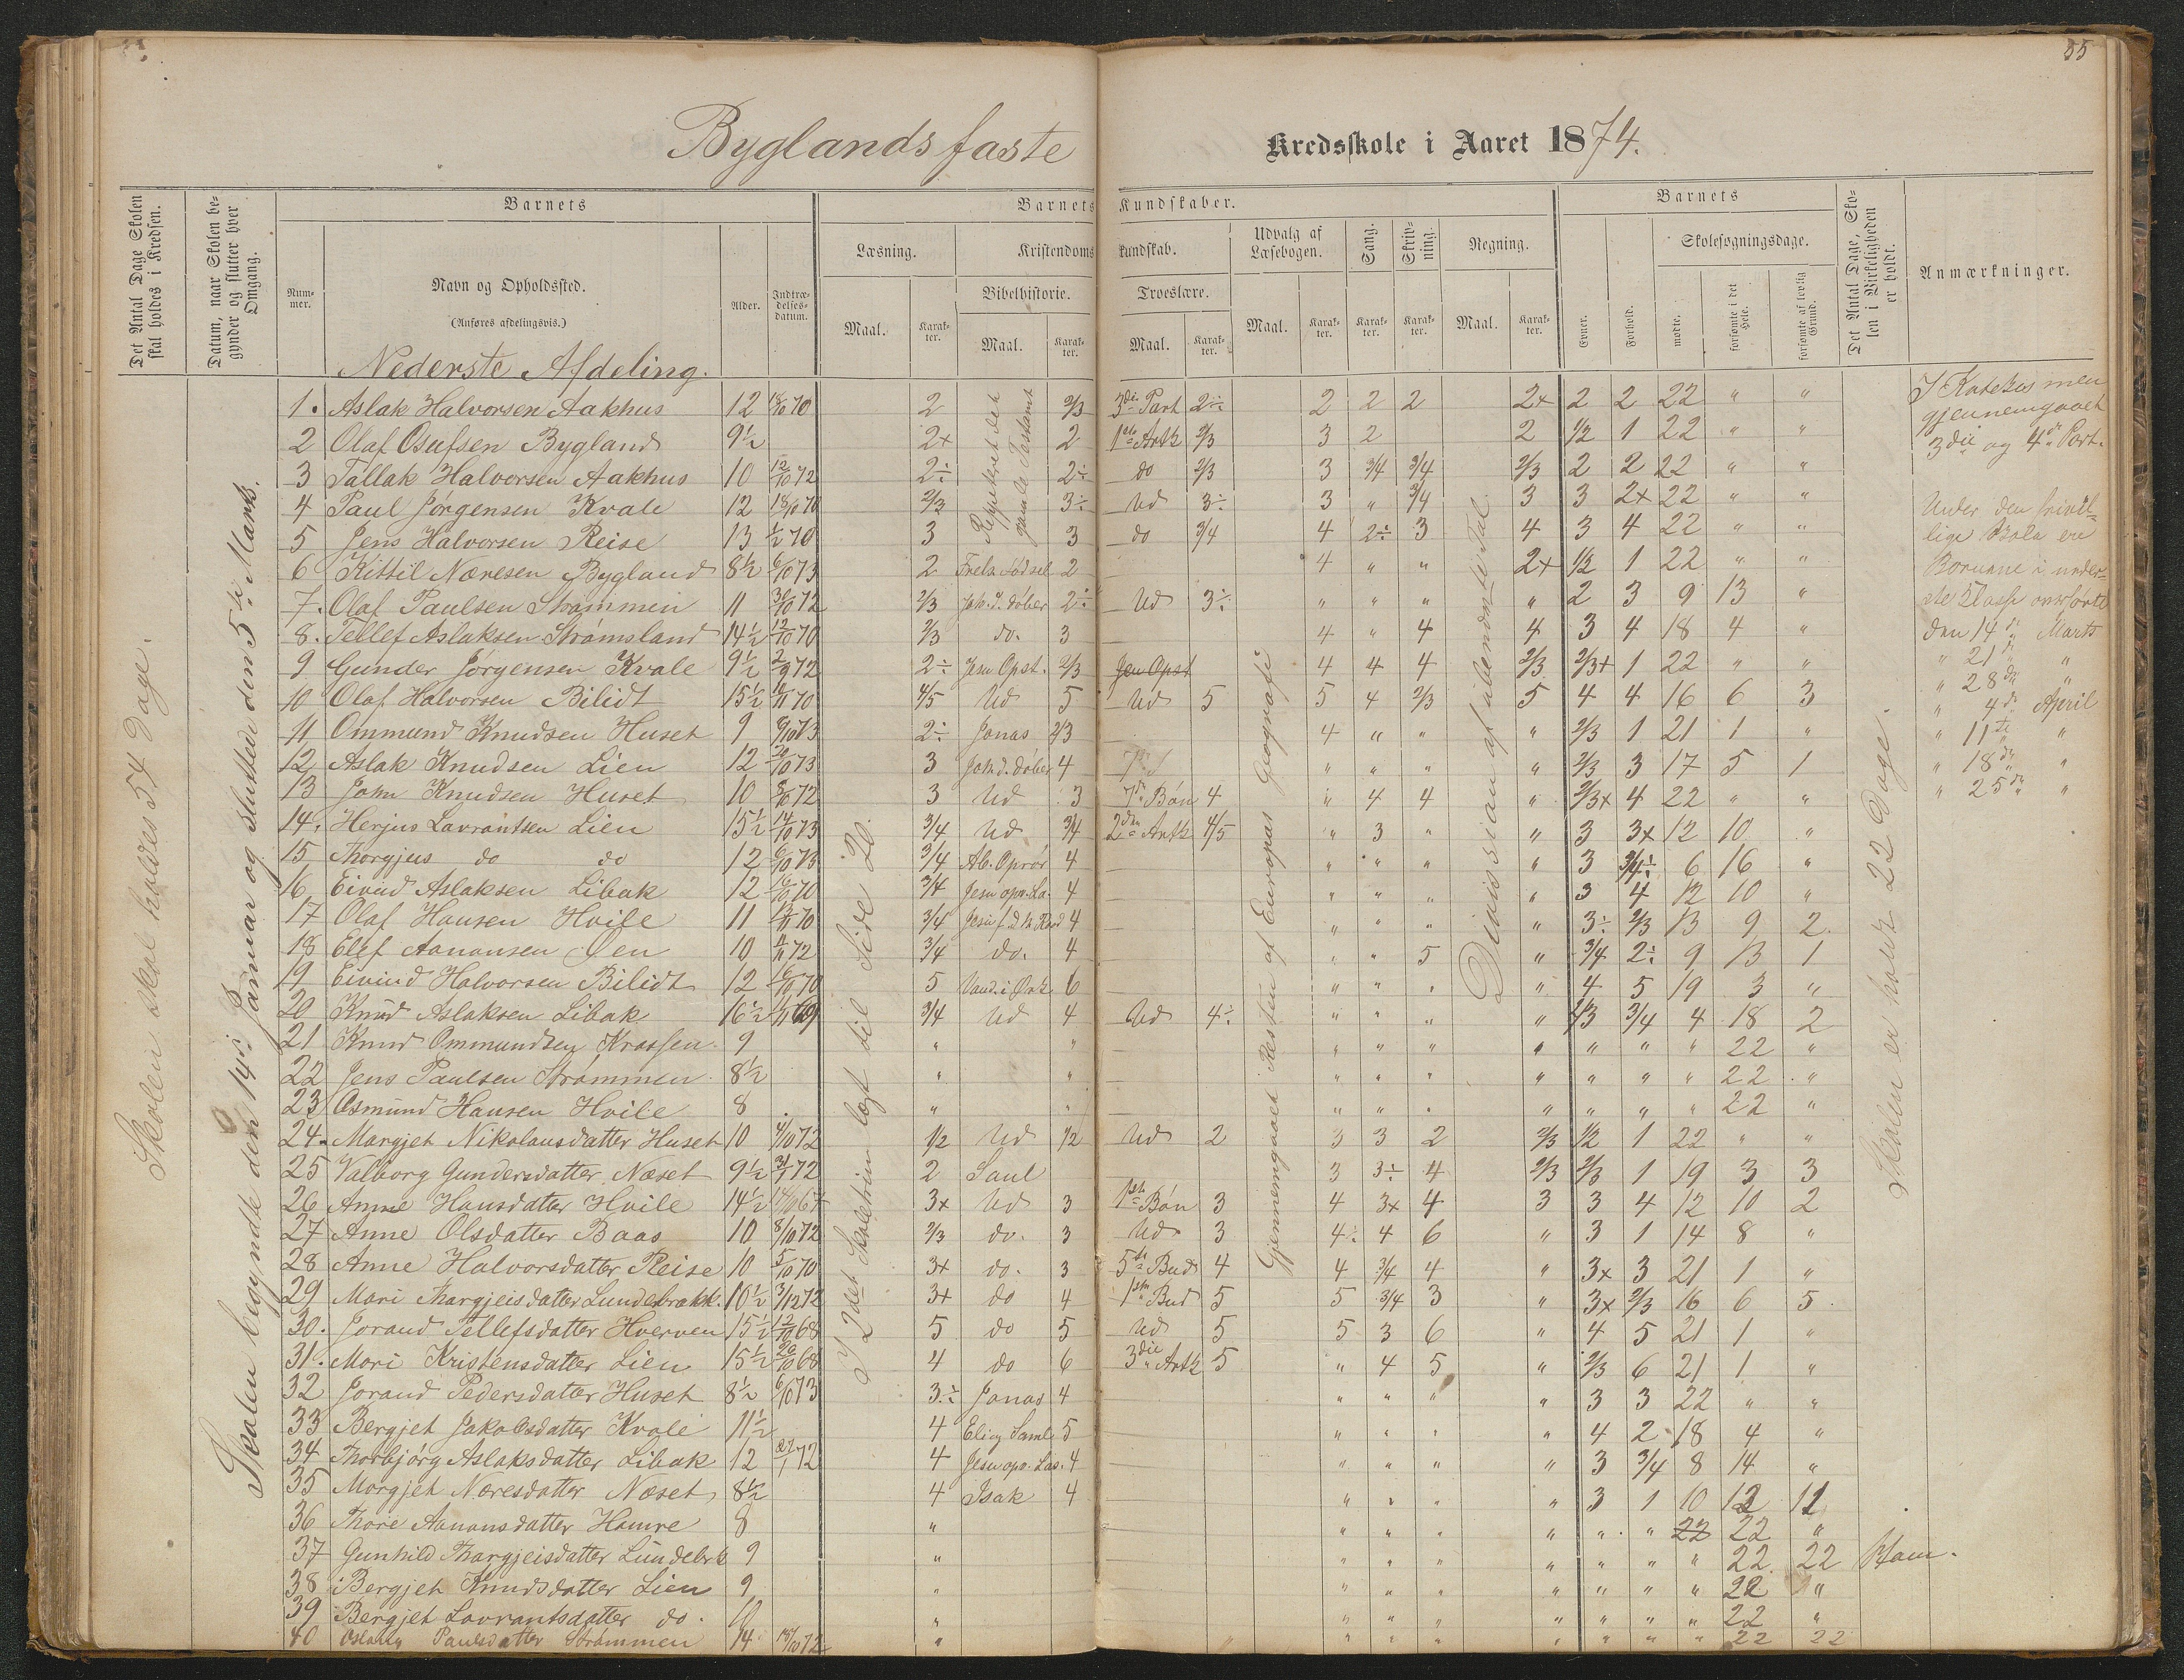 55
Byglands faste Kredsskole i Aaret 1874.
Det Antal Dage Skolen skal holdes i Kredsen.
Datum, naar Skolen begynder og slutter hver Omgang.
Barnets
Nummer.
Navn og Opholdssted.
(Anføres afdelingsvis.)
Alder.
Indtrædelsesdatum.
Barnets Kundskaber.
Læsning.
Maal.
Karakter.
Kristendomskundskab.
Bibelhistorie.
Maal.
Karakter.
Troeslære.
Maal.
Karakter.
Udvalg af Læsebogen.
Maal.
Karakter.
Sang.
Karakter.
Skrivning.
Karakter.
Regning.
Maal.
Karakter.
Barnets
Evner.
Forhold.
Skolesøgningsdage.
mødte.
forsømte i det Hele.
forsømte af lovlig Grund.
Det Antal Dage, Skolen i Virkeligheden er holdt.
Anmærkninger.
Nederste Afdeling.
Skolen skal holdes 54 Dage.
Skolen begyndte den 14de Januar og sluttede den 5te Marts.
I 2det Skoletrin læst til Side 20.
Repeteret det gamle Testamt
Gjennemgaaet Resten af Europas Geografi
Divission af ubenævnte Tal
Skolen er holdt 22 Dage.
1. Aslak Halvorsen Aakhus 12 18/10 70 2 2/3 3die Part 2÷ 2 2 2 2+ 2 2 22 " "
2 Olaf Osufsen Bygland 9½ 2+ 2 1ste Artk 2/3 3 2 2 1/2 1 22 " "
3 Tallak Halvorsen Aakhus 10 12/10 72 2÷ 2÷ do 2/3 3 3/4 3/4 2/3 2 2 22 " "
4 Paul Jørgensen Kvale 12 18/10 70 2/3 3÷ Ud 3÷ 3 " 3/4 3 3 2+ 22 " "
5 Jens Halvorsen Reise 13 1/2 70 3 3 do 3/4 4 2÷ 3 4 3 4 22 " "
6 Kittil Næresen Bygland 8½ 6/10 73 2 Frels Fødsel 2 4 " " 2+ 1/2 1 22 " "
7. Olaf Paulsen Strømmen 11 30/10 72 2/3 Joh. d. døber 2÷ Ud 3÷ " " " " 2 3 9 13 "
8. Tellef Aslaksen Strømsland 14½ 12/10 70 2/3 do. 3 4 " 4 4 3 4 18 4 "
9 Gunder Jørgensen Kvale 9½ 2/9 72 2÷ Jesu Opst. 2/3 Jesu Opst 4 4 4 2/3 2/3+ 1 22 " "
10 Olaf Halvorsen Bilidt 15½ 70 4/5 Ud 5 Ud 5 5 4 2/3 5 4 4 16 6 3
11 Ommund Knudsen Huset 9 9/10 73 2÷ Jonas 2/3 4 " " " 2/3 1 21 1 "
12 Aslak Knudsen Lien 12 20/10 73 3 Joh. d. døber 4 " " " " 2/3 3 17 5 1
13 John Knudsen Huset 10 8/10 72 3 Ud 3 7de Bøn 4 " 4 4 " 2/3+ 4 22 " "
14. Herjus Lavrantsen Lien 15½ 14/10 73 3/4 Ud 3/4 2den Artk 4/5 " 3 " " 3 3+ 12 10 "
15 Thorgjus do do 12 6/10 73 3/4 Ab. Oprør 4 " " " " 3 3/4÷ 6 16 "
16 Eivind Aslaksen Libak 12 16/10 70 3/4 Jesu opv. La. 4 " " " " 3 4 12 10 "
17 Olaf Hansen Hvile 11 70 3/4 4 " " " " 3÷ 2/3 13 9 2
18 Elef Aanonsen Øen 10 72 3/4 do. 4 " " 5 " 3/4 2÷ 9 13 1
19 Eivind Halvorsen Bilidt 12 16/10 70 5 Vand. i Ørk 6 " " " " 4 5 19 3 "
20 Knud Aslaksen Libak 16½ 69 3/4 Ud 4 Ud 4÷ " " " " 3/4 4 18 2
21 Knud Ommundsen Krossen 9 " " " " " " " " " 22 "
22 Jens Paulsen Strømmen 8½ " " " " " " " " " 22 "
23 Osmund Hansen Hvile 8 " " " " " " " " " 22 "
24. Margjet Nikolausdatter Huset 10 4/10 72 1/2 Ud 1/2 Ud 2 3 3 2 2/3 1/2 1 22 " "
25 Valborg Gundersdatter Næset 9½ 31/1 72 2 Saul 3 3÷ 4 2/3 2/3 1 19 3 3
26 Anne Hansdatter Hvile 14½ 67 3+ Ud 3 1ste Bøn 3 4 3+ 4 3 3 4 12 10 2
27 Anne Olsdatter Baas 10 8/10 72 2/3 do. 3 Ud 3 4÷ 4 6 " 3 1 14 8 "
28 Anne Halvorsdatter Reise 10 5/10 70 3+ do. 3 5te Bud 4 4 3/4 4 " 3+ 3 21 1 "
29 Mari Thargjeisdatter Lundebrækk. 10½ 3/12 72 3+ do 4 1ste Bud 5 5 3/4 3 " 3+ 2/3 16 6 5
30. Jorand Tellefsdatter Hverven 15½ 12/10 68 5 do 5 Ud 5 5 3 6 " 4 5 21 1 "
31. Mari Kristensdatter Lien 15½ 20/10 68 4 do 6 3die Artk 5 " 4 5 " 2/3 6 21 1 "
32 Jorand Pedersdatter Huset 8½ 6/10 73 3÷ Jonas 4 " " " " 3 3 22 " "
33 Bergjet Jakobsdatter Kvale 11½ 4 Eli og Saml 5 " " " " 4 2 18 4 "
34 Thorbjørg Aslaksdatter Libak 12 27/1 72 4 Jesu opv. Las. 4 " " " " 3 3/4 8 14 "
35 Margjet Næresdatter Næset 8½ 4 Isak 4 " " " " 3 1 10 12 11
36 Thore Aanonsdatter Hamre 8 " " " " " " " 22 22 "
37 Gunhild Thargjeisdatter Lundebrk 9 " " " " " " " " 22 22 Ham.
38 Bergjet Knudsdatter Lien 9 " " " " " " " " 22 "
39 Bergjet Lavrantsdatter do. 10 " " " " " " " " 22 "
40 Paulsdatter Strømmen 14 72 " " " " " " " " 22 22
I Katekismen
gjennemgaaet
3die og 4de Part.
Under den frivil-
lige Skole ere
Børnene i neder-
ste Klasse
den 14de Marts
" 21de "
" 28de "
" 4de April
" 11te "
" 18de "
" 25de "